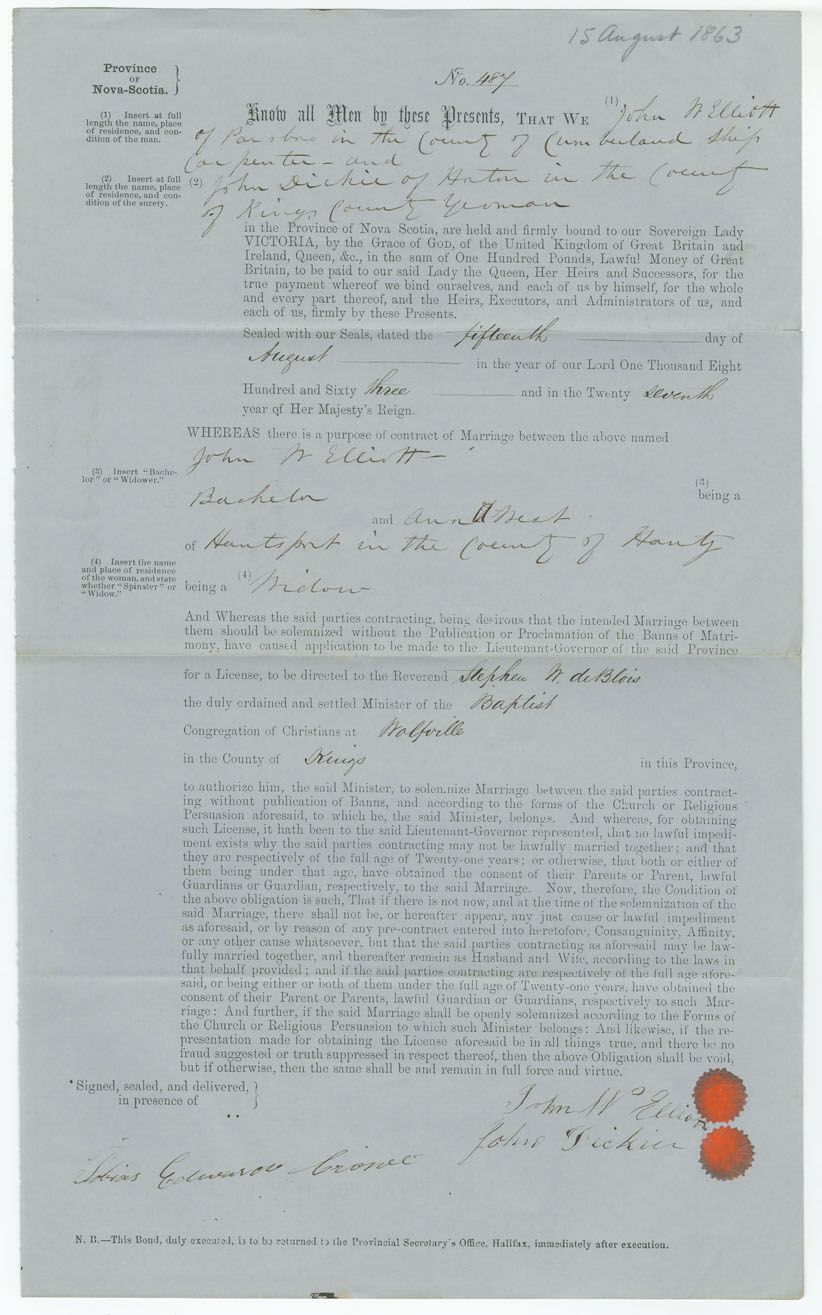 15 August 1863
Province
OF
Nova-Scotia.
No. 487
(1) Insert at full
length the name, place
of residence, and con-
dition of the man.
Know all Men by these Presents, THAT WE (1) John W Elliott
of Parsboro in the County of Cumberland Ship
Carpenter - and
(2) Insert at full
length the name, place
of residence, and con-
dition of the surety.
(2) John Dickie of Horton in the County
of Kings County Yeoman
in the Province of Nova Scotia, are held and firmly bound to our Sovereign Lady
VICTORIA, by the Grace of GOD, of the United Kingdom of Great Britain and
Ireland, Queen, &c., in the sum of One Hundred Pounds, Lawful Money of Great
Britain, to be paid to our said Lady the Queen, Her Heirs and Successors, for the
true payment whereof we bind ourselves, and each of us by himself, for the whole
and every part thereof, and the Heirs, Executors, and Administrators of us, and
each of us, firmly by these Presents.
Sealed with our Seals, dated the fifteenth day of
August in the year of our Lord One Thousand Eight
Hundred and Sixty three and in the Twenty seventh
year of Her Majesty's Reign.
WHEREAS there is a purpose of contract of Marriage between the above named
John W Elliott -
(3) Insert "Bache-
lor" or "Widower."
(3)
Bachelor being a
and Ann West
of Hantsport in the County of Hants
(4) Insert the name
and place of residence
of the woman, and state
whether "Spinster" or
"Widow."
being a (4) Widow
And Whereas the said parties contracting, being desirous that the intended Marriage between
them should be solemnized without the Publication or Proclamation of the Banns of Matri-
mony, have caused application to be made to the Lieutenant-Governor of the said Province
for a License, to be directed to the Reverend Stephen W. deBlois
the duly ordained and settled Minister of the Baptist
Congregation of Christians at Wolfville
in the County of Kings in this Province,
to authorize him, the said Minister, to solemnize Marriage between the said parties contract-
ing without publication of Banns, and according to the forms of the Church or Religious
Persuasion aforesaid, to which he, the said Minister, belongs. And whereas, for obtaining
such License, it hath been to the said Lieutenant-Governor represented, that no lawful impedi-
ment exists why the said parties contracting may not be lawfully married together; and that
they are respectively of the full age of Twenty-one years; or otherwise, that both or either of
them being under that age, have obtained the consent of their Parents or Parent, lawful
Guardians or Guardian, respectively, to the said Marriage. Now, therefore, the Condition of
the above obligation is such, That if there is not now, and at the time of the solemnization of the
said Marriage, there shall not be, or hereafter appear, any just cause or lawful impediment
as aforesaid, or by reason of any pre-contract entered into heretofore, Consanguinity, Affinity,
or any other cause whatsoever, but that the said parties contracting as aforesaid may be law-
fully married together, and thereafter remain as Husband and Wife, according to the laws in
that behalf provided; and if the said parties contracting are respectively of the full age afore-
said, or being either or both of them under the full age of Twenty-one years, have obtained the
consent of their Parent or Parents, lawful Guardian or Guardians, respectively to such Mar-
riage: And further, if the said Marriage shall be openly solemnized according to the Forms of
the Church or Religious Persuasion to which such Minister belongs: And likewise, if the re-
presentation made for obtaining the License aforesaid be in all things true, and there be no
fraud suggested or truth suppressed in respect thereof, then the above Obligation shall be void,
but if otherwise, then the same shall be and remain in full force and virtue.
Signed, sealed, and delivered,
in presence of
John W Elliott
John Dickie
Tobias Edward
N. B.—This Bond, duly executed, is to be returned to the Provincial Secretary's Office, Halifax, immediately after execution.